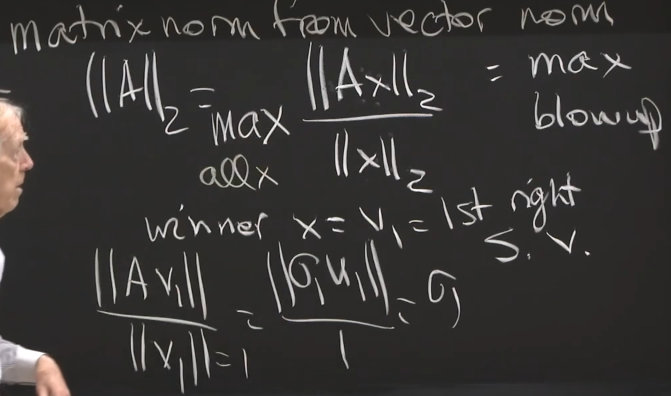 matrix norm from vector norm
||A||₂ = max all x ||Ax||₂ / ||x||₂ = max blowup
winner x = v₁ = 1st right S. V.
||Av₁|| / ||v₁||=1 = ||σ₁u₁|| / 1 = σ₁